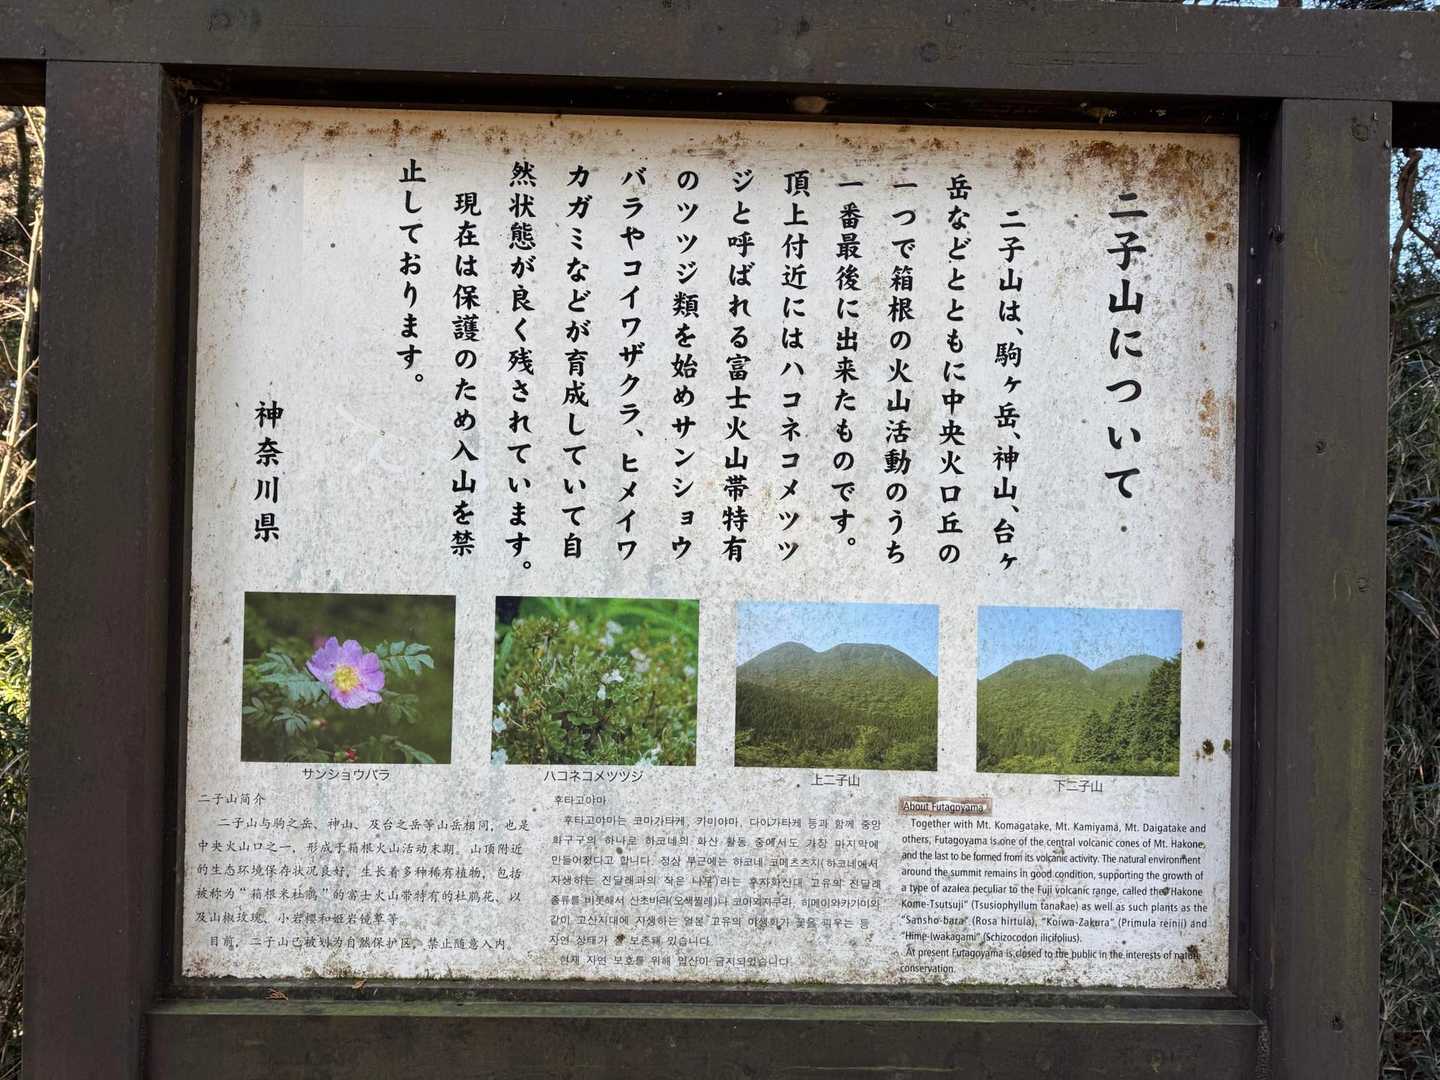 二子山について
二子山は、駒ヶ岳、神山、台ヶ
岳などとともに中央火口丘の
一つで箱根の火山活動のうち
一番最後に出来たものです。
頂上付近にはハコネコメツツ
ジと呼ばれる富士火山帯特有
のツツジ類を始めサンショウ
バラやコイワザクラ、ヒメイワ
カガミなどが育成していて自
然状態が良く残されています。
現在は保護のため入山を禁
止しております。
神奈川県
サンショウバラ
ハコネコメツツジ
上二子山
下二子山
二子山简介
二子山与驹之岳、神山、及台之岳等山岳相同，也是
中央火山口之一，形成于箱根火山活动末期。山顶附近
的生态环境保存状况良好，生长着多种稀有植物，包括
被称为“箱根米杜鹃”的富士火山带特有的杜鹃花、以
及山椒玫瑰、小岩樱和姬岩镜草等。
目前，二子山已被划为自然保护区，禁止随意入内。
후타고야마
후타고야마는 코마가타케, 카미야마, 다이가타케 등과 함께 중앙
화구구의 하나로 하코네의 화산 활동 중에서도 가장 마지막에
만들어졌다고 합니다. 정상 부근에는 하코네 코메츠츠지(하코네에서
자생하는 진달래과의 작은 나무)라는 후지화산대 고유의 진달래
종류를 비롯해서 산쇼바라(오색찔레)나 코이와자쿠라, 히메이와카가미와
같이 고산지대에 자생하는 일본 고유의 야생화가 꽃을 피우는 등
자연 상태가 잘 보존돼 있습니다.
현재 자연 보호를 위해 입산이 금지되었습니다.
About Futagoyama
Together with Mt. Komagatake, Mt. Kamiyama, Mt. Daigatake and
others, Futagoyama is one of the central volcanic cones of Mt. Hakone,
and the last to be formed from its volcanic activity. The natural environment
around the summit remains in good condition, supporting the growth of
a type of azalea peculiar to the Fuji volcanic range, called the "Hakone
Kome-Tsutsuji" (Tsusiophyllum tanakae) as well as such plants as the
"Sansho-bara" (Rosa hirtula), "Koiwa-Zakura" (Primula reinii) and
"Hime-Iwakagami" (Schizocodon ilicifolius).
At present Futagoyama is closed to the public in the interests of nature
conservation.